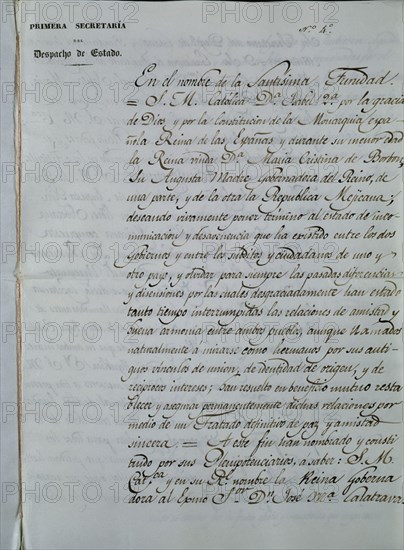 PRIMERA SECRETARÍA
DEL
Despacho de Estado.
Nº 4º
En el nombre de la Santísima Trinidad.
= S. M. Católica Dª Isabel 2ª por la gracia
de Dios, y por la Constitucion de la Monarquia espa
ñola Reina de las Españas y durante su menor edad
la Reina viuda Dª Maria Cristina de Borbon,
Su Augusta Madre Gobernadora del Reino, de
una parte, y de la otra la República Mejicana;
deseando vivamente poner término al estado de inco-
municacion y desavenencia que ha existido entre los dos
Gobiernos y entre los súbditos y ciudadanos de uno y
otro pays, y olvidar para siempre las pasadas diferencias
y disensiones por las cuales desgraciadamente han estado
tanto tiempo interrumpidas las relaciones de amistad y
buena armonia entre ambos pueblos, aunque llamados
naturalmente á mirarse como hermanos por sus anti-
guos vínculos de union, de identidad de origen, y de
recíprocos intereses; han resuelto en beneficio mutuo esta
blecer y asegurar permanentemente dichas relaciones por
medio de un Tratado definitivo de paz y amistad
sincera. = A este fin han nombrado y consti
tuido por sus Plenipotenciarios, á saber: S. M.
Catca y en su Rl nombre la Reina Goberna
dora al Exmo Sor Dn José Mª Calatrava.
PHOTO12